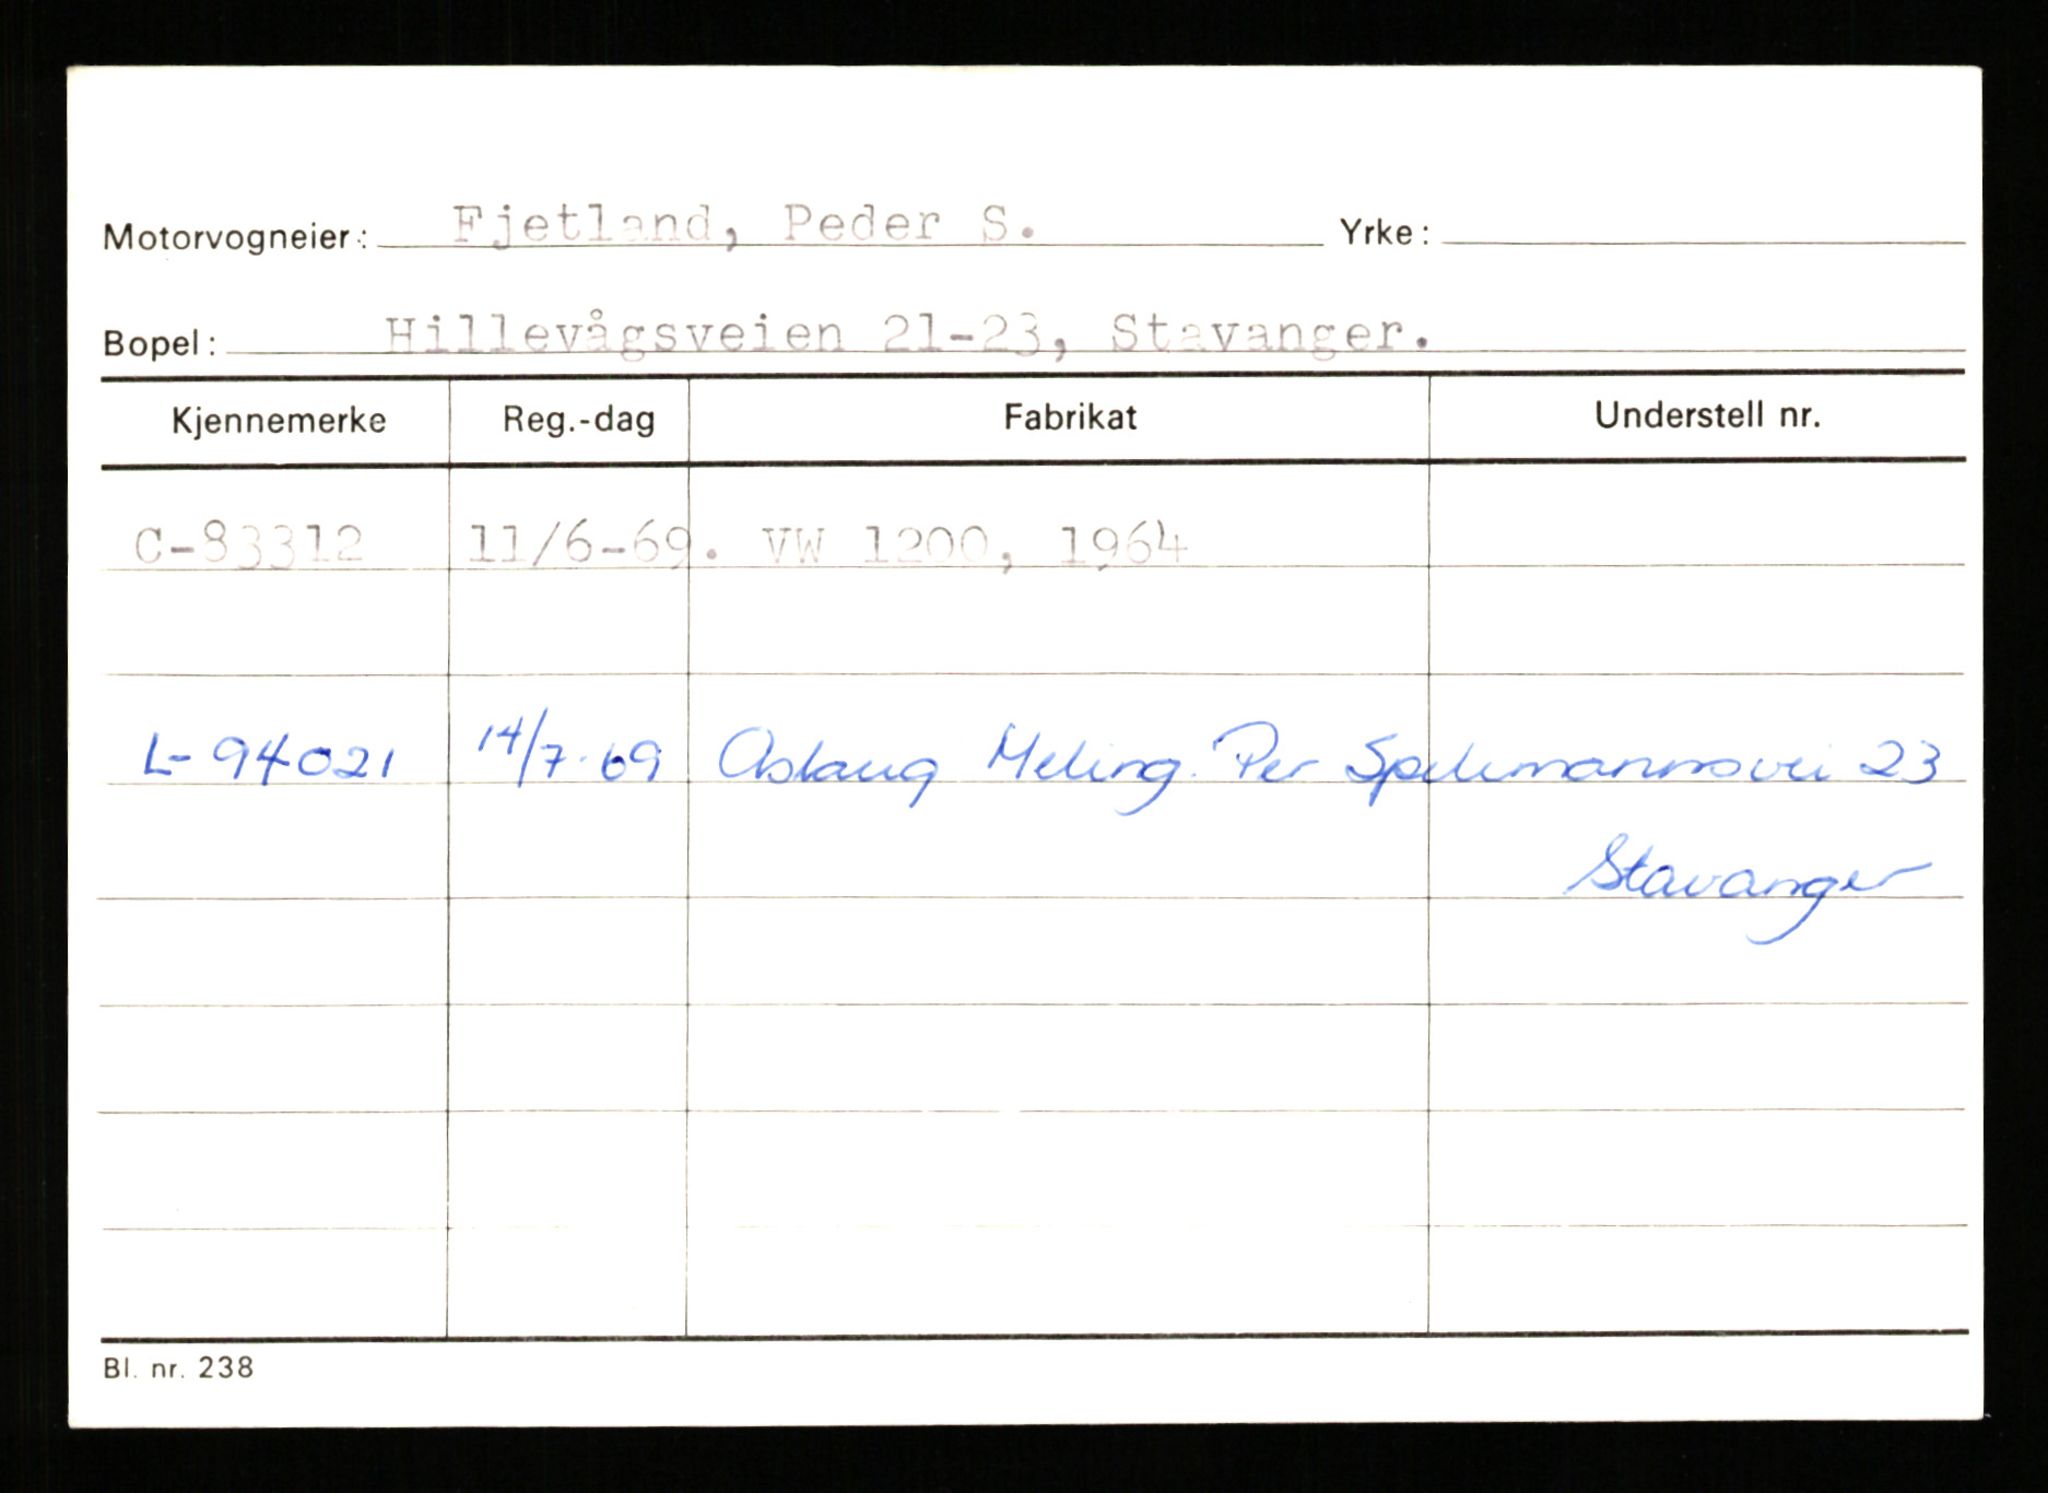 Motorvogneier: Fjetland, Peder S. Yrke:
Bopel: Hillevågsveien 21-23, Stavanger.
Kjennemerke Reg.-dag Fabrikat Understell nr.
C-83312 11/6-69. VW 1200, 1964
L-94021 14/7-69 Aslaug Meling. Per Spelemannsvei 23
Stavanger
Bl. nr. 238